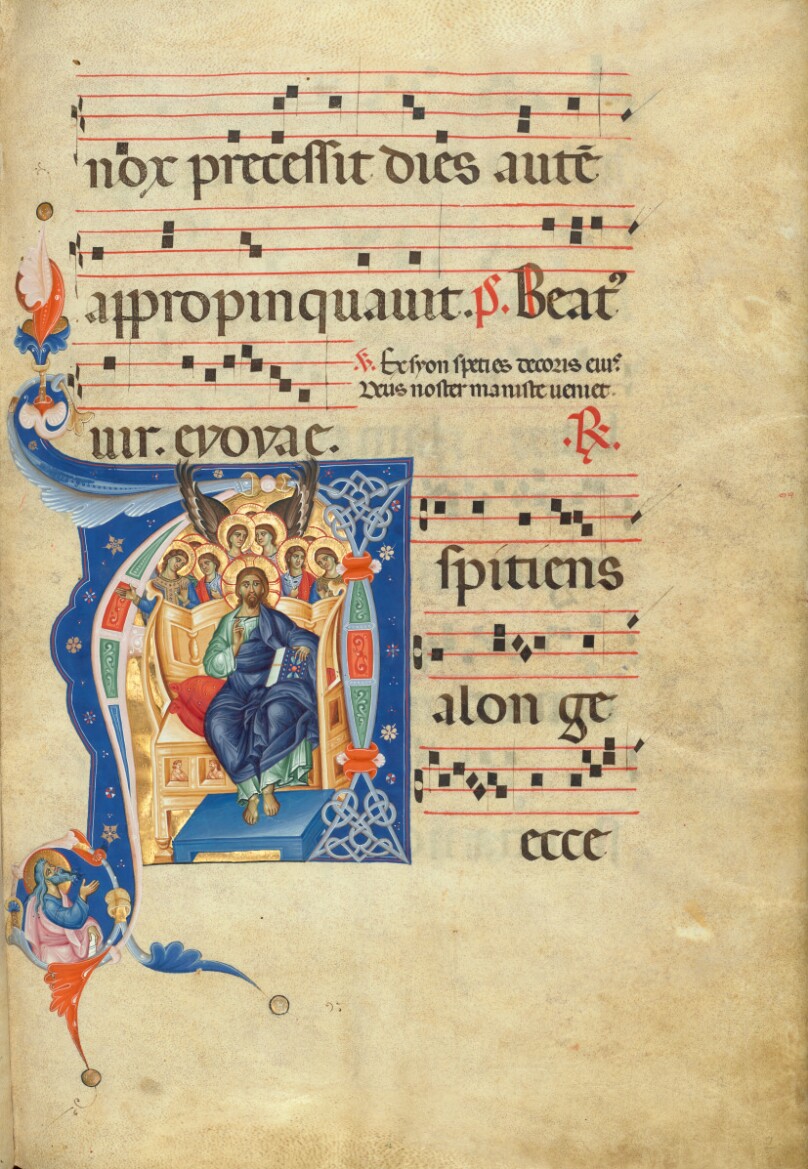 nox precessit dies autē
appropinquauit. P̃. Beatꝰ
uir. evovae.
℣. Ex syon speties decoris eiusꝰ.
Deus noster maniste ueniet.
.℟.
Aspitiens
alon ge
ecce